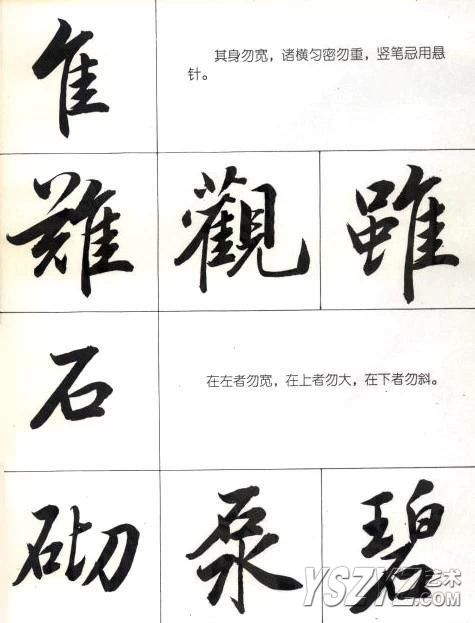 隹
其身勿宽，诸横匀密勿重，竖笔忌用悬
针。
難 觀 雖
石
在左者勿宽，在上者勿大，在下者勿斜。
砌 泵 碧
YSZYZ艺术